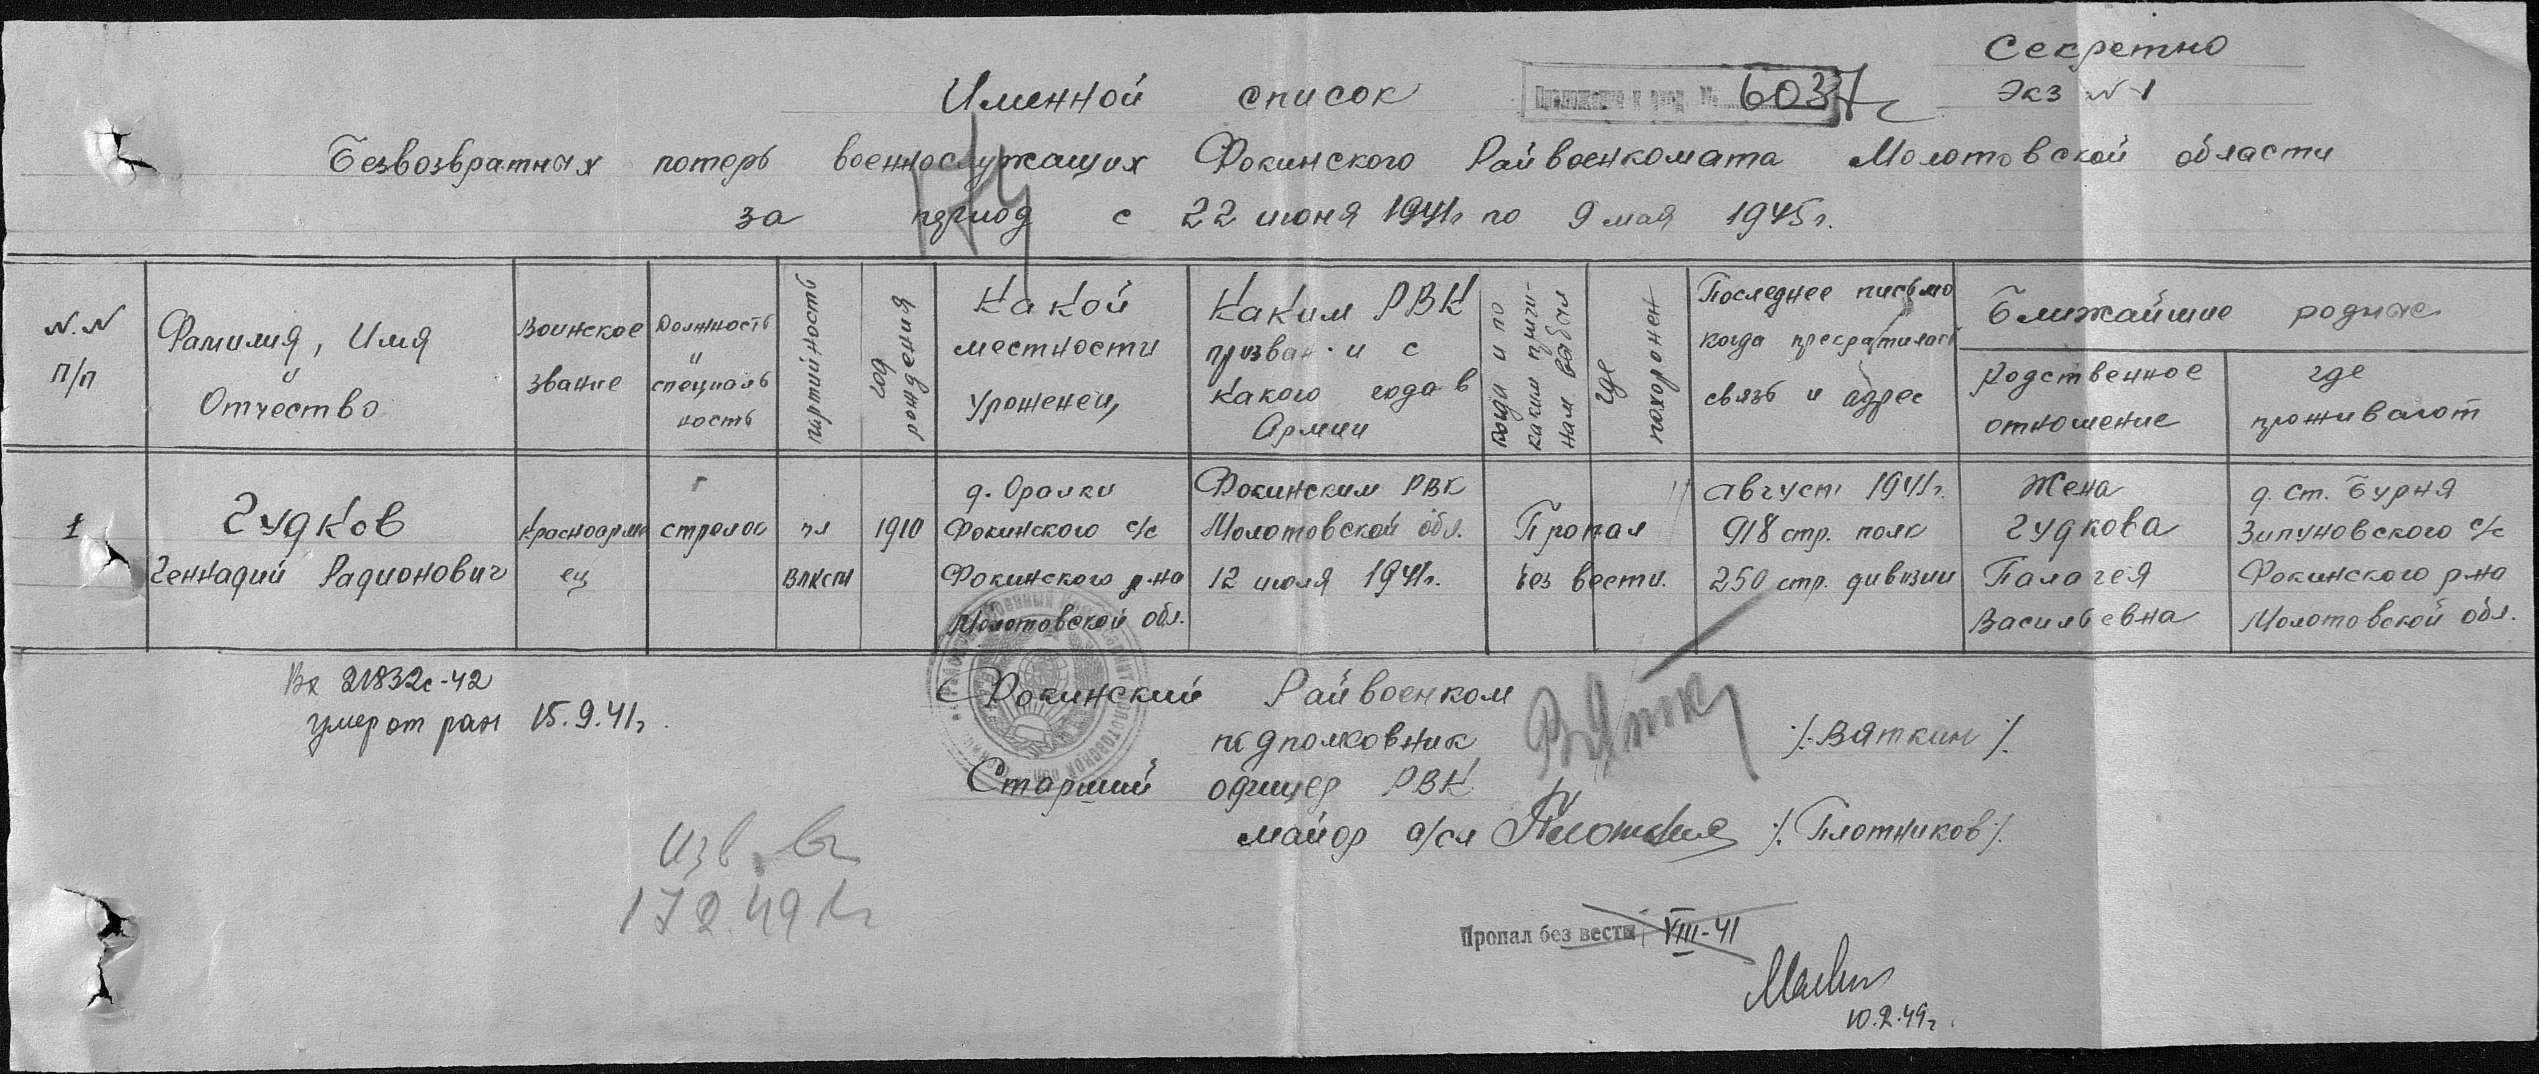 Секретно
Экз № 1
Приложение к вход. № 6037с
Именной список
Безвозвратных потерь военнослужащих Фокинского Райвоенкомата Молотовской области
за период с 22 июня 1941г по 9 мая 1945г.
N.N п/п
Фамилия, Имя и Отчество
Воинское звание
Должность и специаль ность
партийность
год рождения
Какой местности уроженец,
Каким РВК призван и с какого года в Армии
Когда и по каким причи- нам выбыл
где похоронен
Последнее письмо когда прекратилась связь и адрес
Ближайшие родные
Родственное отношение
где проживают
1
Гудков
Геннадий Радионович
Красноарме
ец
стрелок
чл
ВЛКСМ
1910
д. Оралки
Фокинского с/с
Фокинского р-на
Молотовской обл.
Фокинским РВК
Молотовской обл.
12 июля 1941г.
Пропал
без вести.
август 1941г.
918 стр. полк
250 стр. дивизии
Жена
Гудкова
Палагея
Васильевна
д. ст. Бурня
Зипуновского с/с
Фокинского р-на
Молотовской обл.
Вх 21832с-42
умер от ран 15.9.41г.
Фокинский Райвоенком
подполковник /. Вяткин /.
Старший офицер РВК
майор а/сл /. Плотников /.
Изв.
17 2.49г
Пропал без вести VIII-41
10.2.49г.